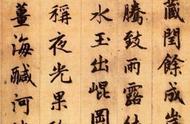 藏閏餘成歲
騰致雨露結
水玉出崐岡
稱夜光果
薑海鹹河